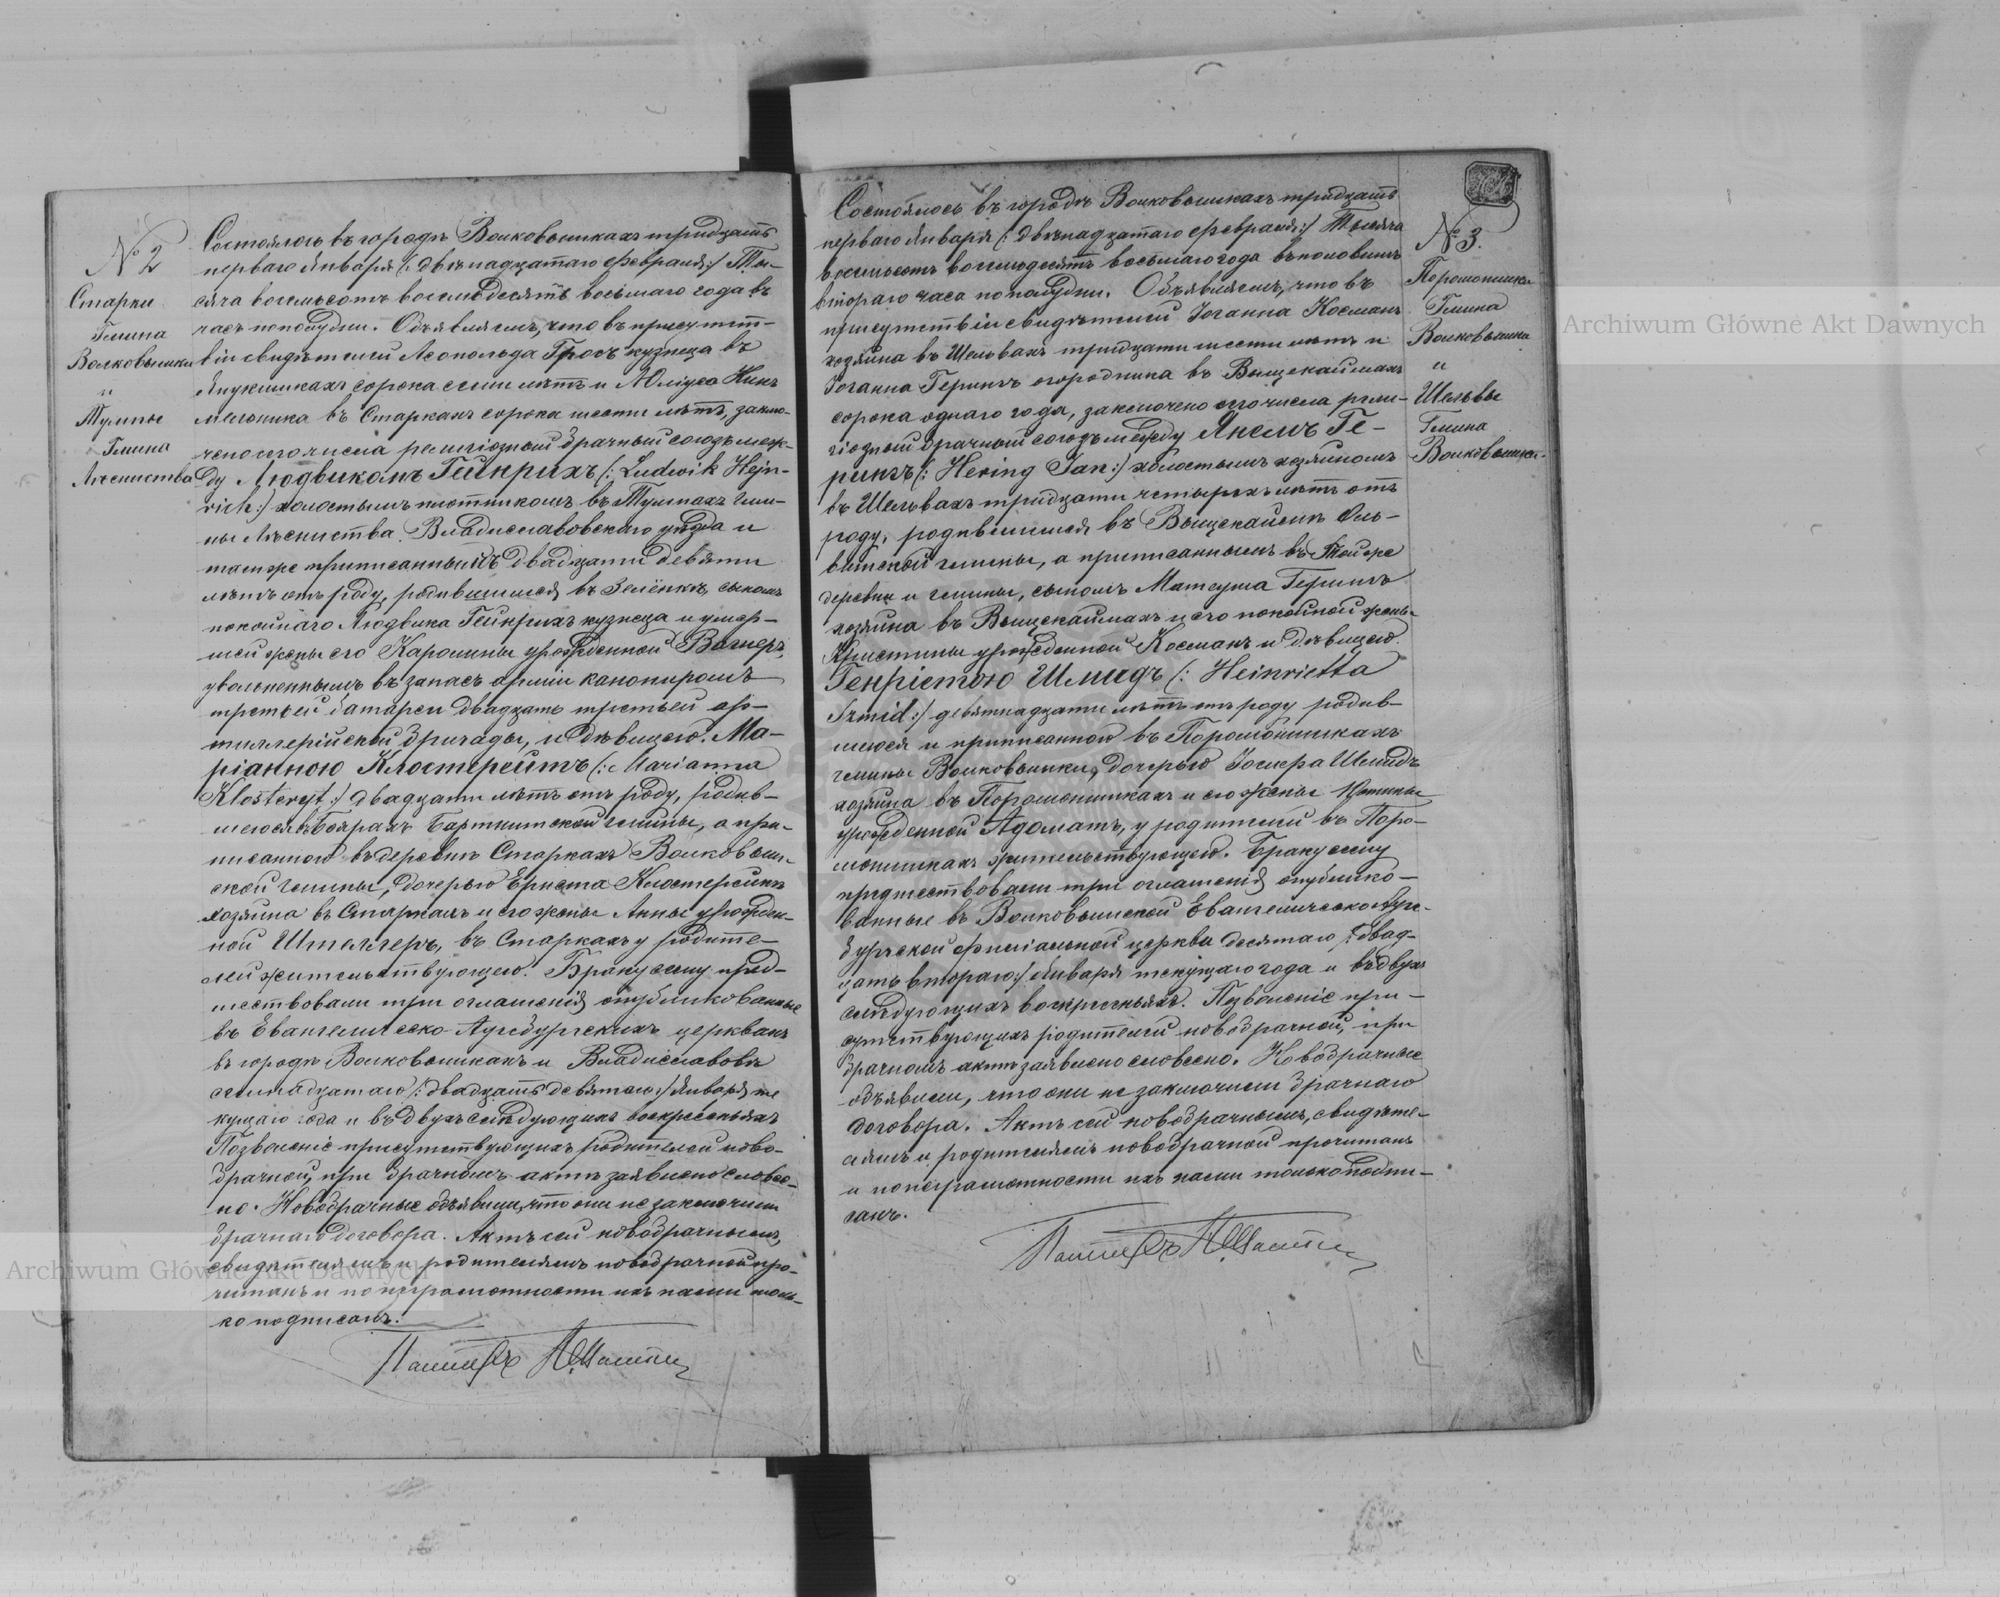 № 2
Старки
Гмина
Волковышки
и
Тумпы
Гмина
Лѣсниства
Состоялось въ городѣ Волковышкахъ тридцать
перваго Января /: двѣнадцатаго Февраля :/ Ты-
сяча восемьсотъ восемьдесятъ восьмаго года въ
часъ пополудни. Объявляемъ, что въ присутст-
віи свидѣтелей Леопольда Гросъ кузнеца въ
сорока семи лѣтъ и Юліуса
мельника въ Старкахъ сорока шести лѣтъ, заклю-
чено сего числа религіозный брачный союзъ меж-
ду Людвикомъ Гейнрихъ /: Ludwik Hejn-
rich :/ холостымъ плотникомъ въ Тумпахъ гми-
ны Лѣсниства Владиславовскаго уѣзда и
тамже приписаннымъ двадцати девяти
лѣтъ отъ роду, родившимся въ Зелёнкѣ, сыномъ
покойнаго Людвика Гейнрихъ кузнеца и умер-
шей жены его Каролины урожденной Вагнеръ,
уволеннымъ въ запасъ арміи канониромъ
третьей батареи двадцать третьей ар-
тиллерійской бригады, и дѣвицею Ма-
ріанною Клостерейтъ /: Marianna
Klostereyt :/ двадцати лѣтъ отъ роду, родив-
шеюся въ Бояряхъ Бартнитской гмины, а при-
писанною въ деревнѣ Старкахъ Волковыш-
ской гмины, дочерью Ернста Клостерейтъ
хозяина въ Старкахъ и его жены Анны урожден-
ной Штеллеръ, въ Старкахъ у родите-
лей жительствующею. Браку сему пред-
шествовали три оглашенія опубликованные
въ Евангелическо-Аугсбургскихъ церквахъ
въ городѣ Волковышкахъ и Владиславовѣ
семнадцатаго /: двадцать девятаго :/ Января те
кущаго года и въ двухъ слѣдующихъ воскресеньяхъ
Позволеніе присутствующихъ родителей ново-
брачной, при брачномъ актѣ заявлено словес-
но. Новобрачные объявили, что они не заключили
брачнаго договора. Актъ сей новобрачнымъ,
свидѣтелямъ и родителямъ новобрачной про-
читанъ и по неграмотности ихъ нами толь-
ко подписанъ.
Пасторъ
№ 3.
Поромонишки
Гмина
Волковышки
и
Шельвы
Гмина
Волковышки
Состоялось въ городѣ Волковышкахъ тридцать
перваго Января /: двѣнадцатаго Февраля :/ Тысяча
восемьсотъ восемьдесятъ восьмаго года въ половинѣ
втораго часа пополудни. Объявляемъ, что въ
присутствіи свидѣтелей Іоганна Косманъ
хозяина въ Шельвахъ тридцати шести лѣтъ и
Іоганна Герингъ огородника въ Выщекаймахъ
сорока одного года, заключено сего числа рели-
гіозный брачный союзъ между Яномъ Ге-
рингъ /: Hering Jan :/ холостымъ хозяиномъ
въ Шельвахъ тридцати четырехъ лѣтъ отъ
роду, родившимся въ Выщекаймѣ Оль-
витской гмины, а приписаннымъ въ тойже
деревни и гмины, сыномъ Матеуша Герингъ
хозяина въ Выщекаймахъ и его покойной жены
Кристины урожденной Косманъ и дѣвицею
Генріетою Шмидъ /: Heinrietta
Szmid :/ девятнадцати лѣтъ отъ роду родив-
шеюся и приписанною въ Поромонишкахъ
гмины Волковышки, дочерью Іосифа Шмидъ
хозяина въ Поромонишкахъ и его жены Юстины
урожденной Адоматъ, у родителей въ Поро-
монишкахъ жительствующею. Браку сему
предшествовали три оглашенія опублико-
ванные въ Волковышской Евангелическо-Аугс-
бургской филіальной церкви десятаго /: двад-
цать втораго :/ Января текущаго года и въ двухъ
слѣдующихъ воскресеньяхъ. Позволеніе при-
сутствующихъ родителей новобрачной, при
брачномъ актѣ заявлено словесно. Новобрачные
объявили, что они не заключили брачнаго
договора. Актъ сей новобрачнымъ, свидѣте-
лямъ и родителямъ новобрачной прочитанъ
и по неграмотности ихъ нами только подпи-
санъ.
Пасторъ
Archiwum Główne Akt Dawnych
Archiwum Główne Akt Dawnych